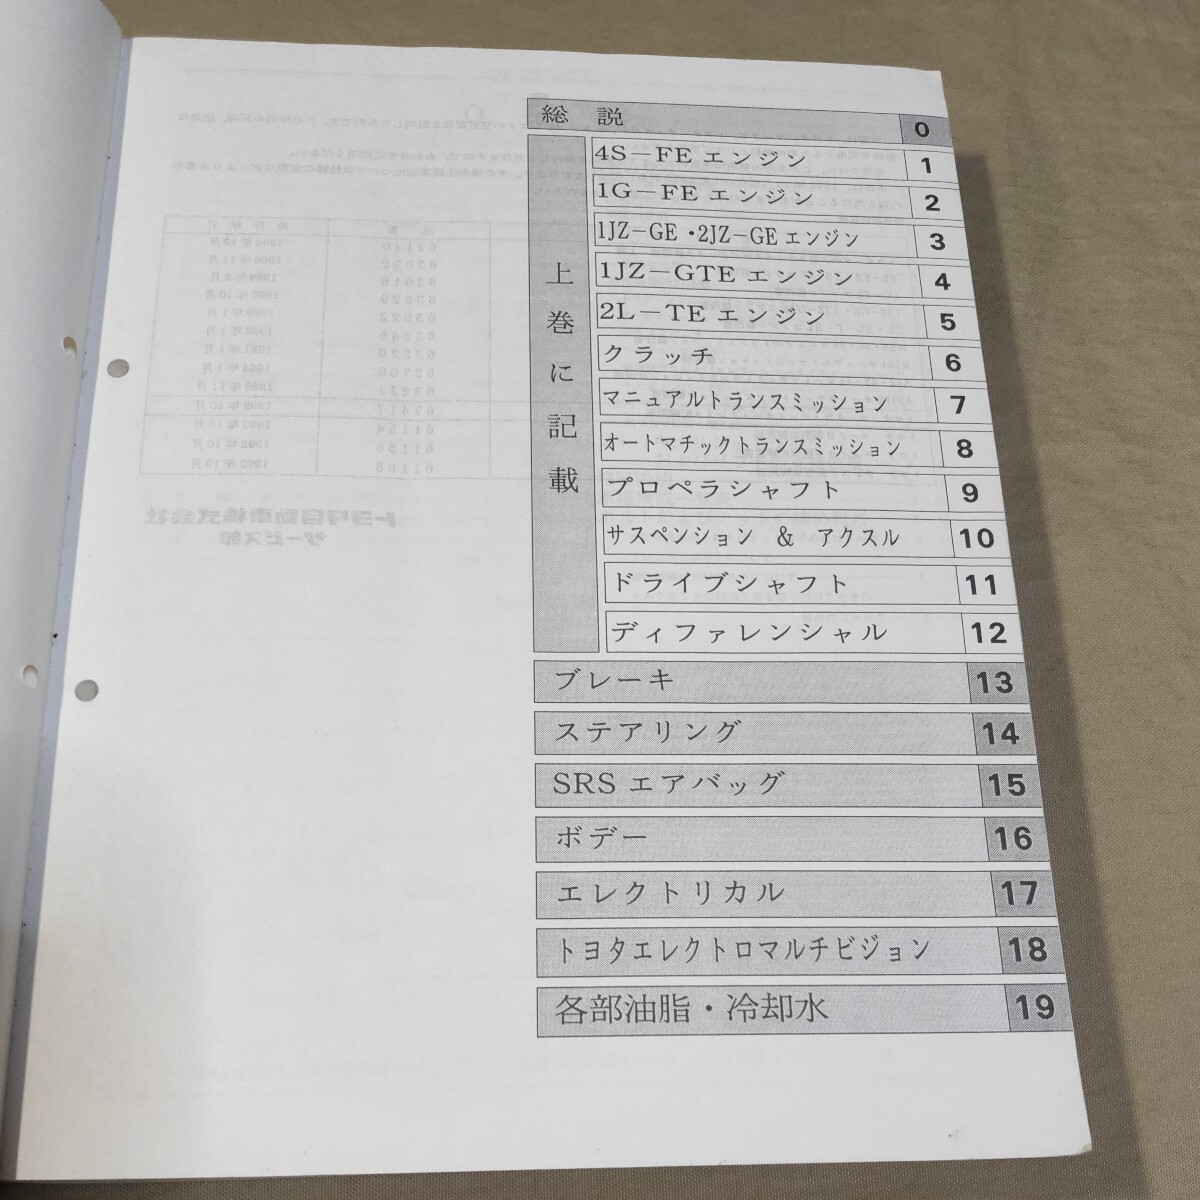 総 説 0
上巻に記載
4S－FE エンジン 1
1G－FE エンジン 2
1JZ－GE・2JZ－GE エンジン 3
1JZ－GTE エンジン 4
2L－TE エンジン 5
クラッチ 6
マニュアルトランスミッション 7
オートマチックトランスミッション 8
プロペラシャフト 9
サスペンション & アクスル 10
ドライブシャフト 11
ディファレンシャル 12
ブレーキ 13
ステアリング 14
SRS エアバッグ 15
ボデー 16
エレクトリカル 17
トヨタエレクトロマルチビジョン 18
各部油脂・冷却水 19